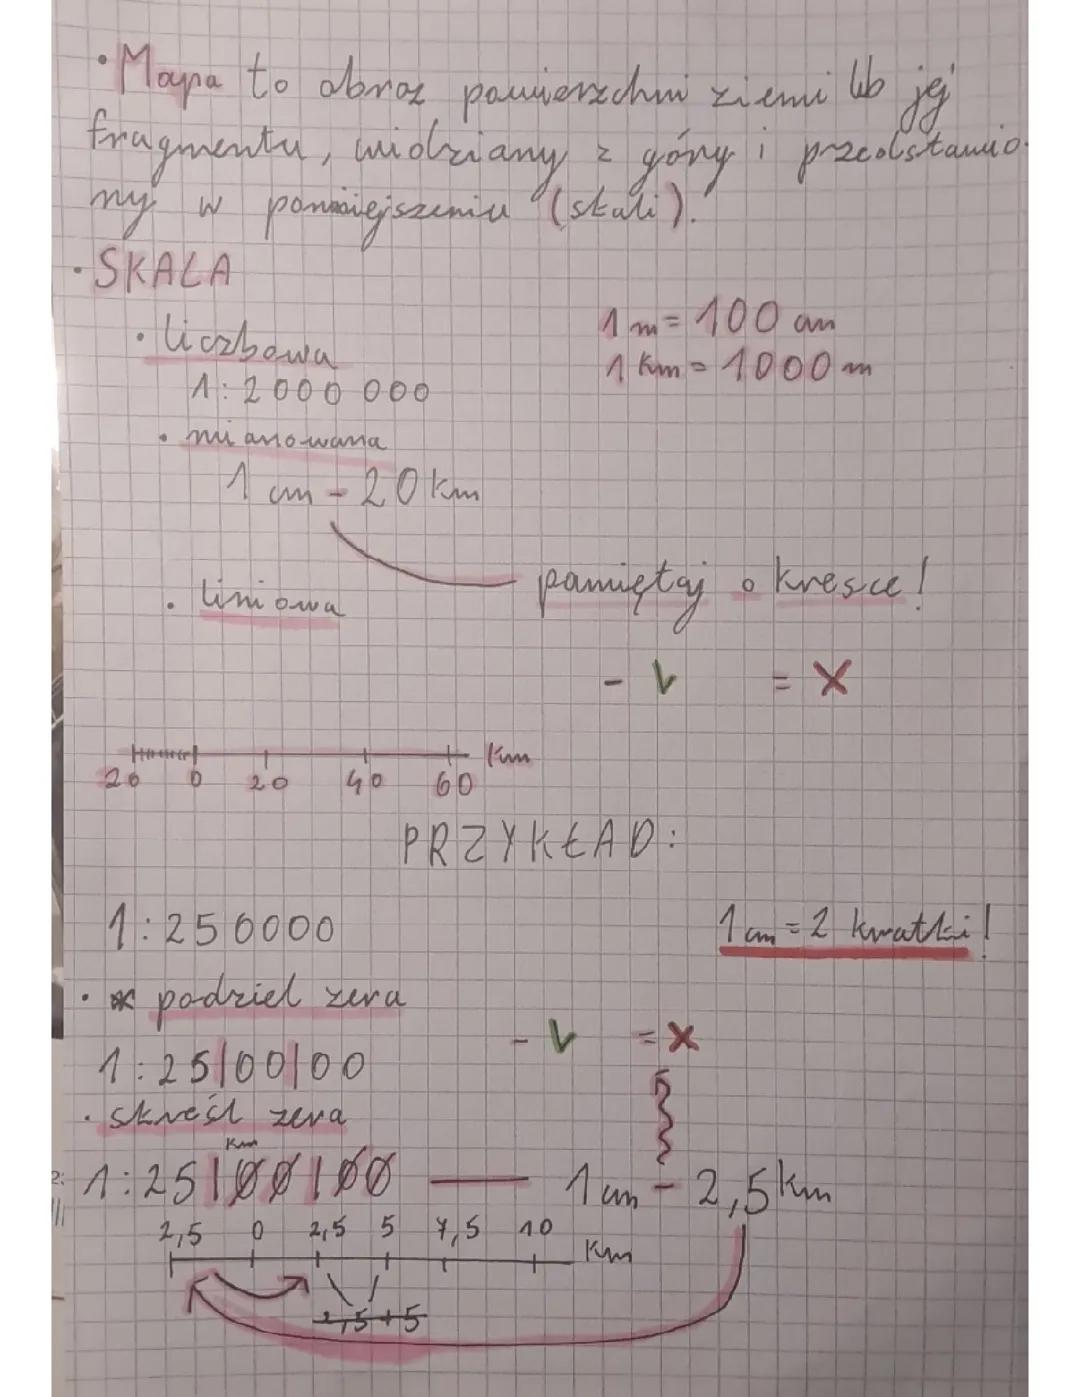 • Mapa to obraz powierzchni ziemi lub jej
fragmentu, widziany z góry i przedstawio-
ny w pomniejszeniu (skali).
• SKALA
• liczbowa
1 m = 100 cm
1 km = 1000 m
1 : 2000 000
• mianowana
1 cm - 20 km
pamiętaj o kresce!
• liniowa
- V = X
km
20 0 20 40 60
PRZYKŁAD:
1 : 250000
1 cm = 2 kratki!
• podziel zera
- V = X
1 : 25|00|00
• skreśl zera
km
1 : 25|00|00 — 1 cm - 2,5 km
2,5 0 2,5 5 7,5 10
km
2,5 + 5